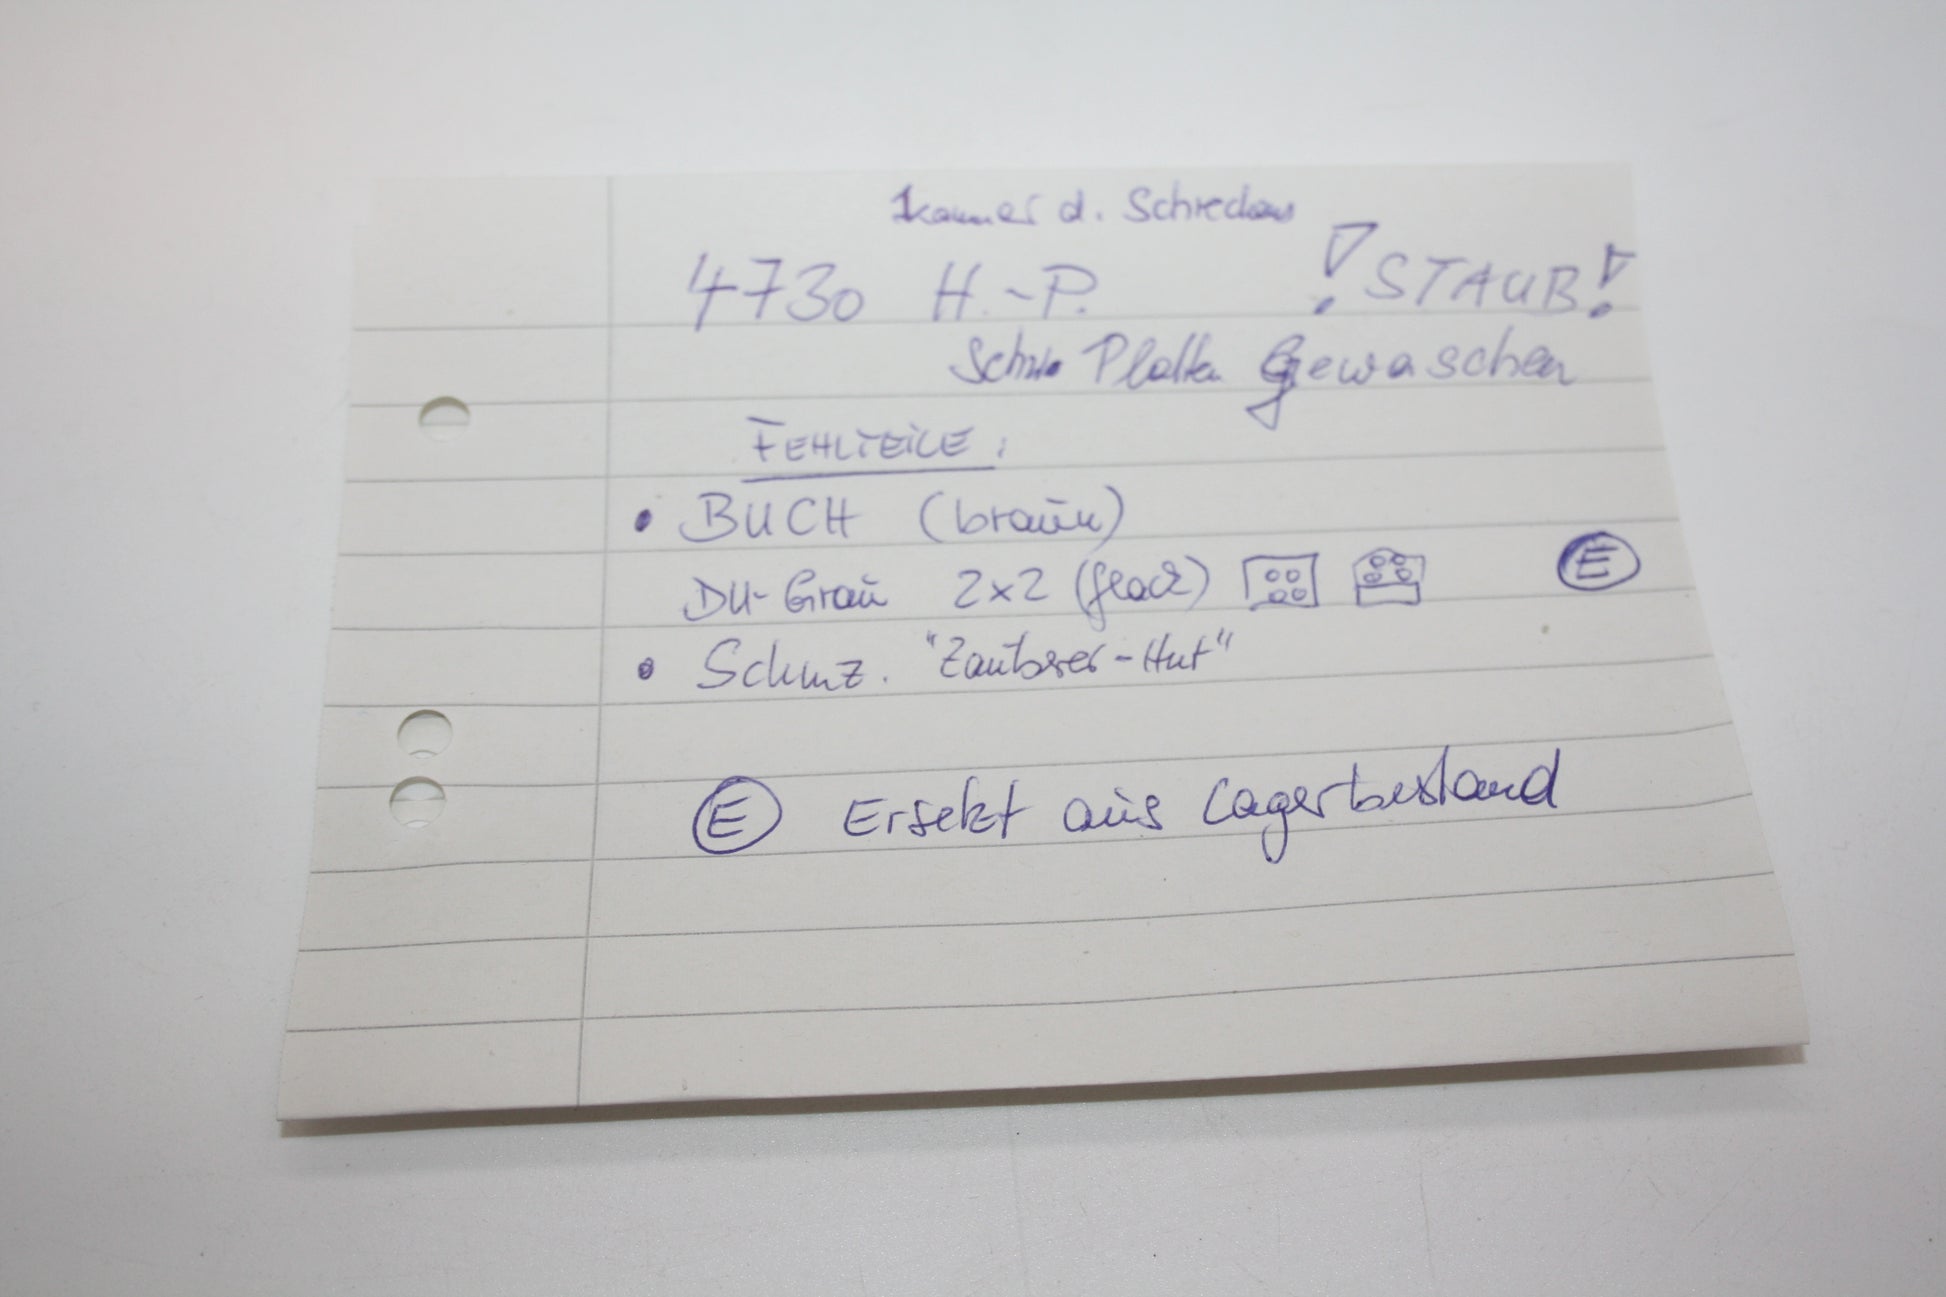 Kammer d. Schreckens
4730 H.-P. ! STAUB!
Platten Gewaschen
FEHLTEILE:
• BUCH (braun)
DU-Grau 2x2 (flach) E
• Schwz. "Zauberer-Hut"
E Ersetzt aus Lagerbestand